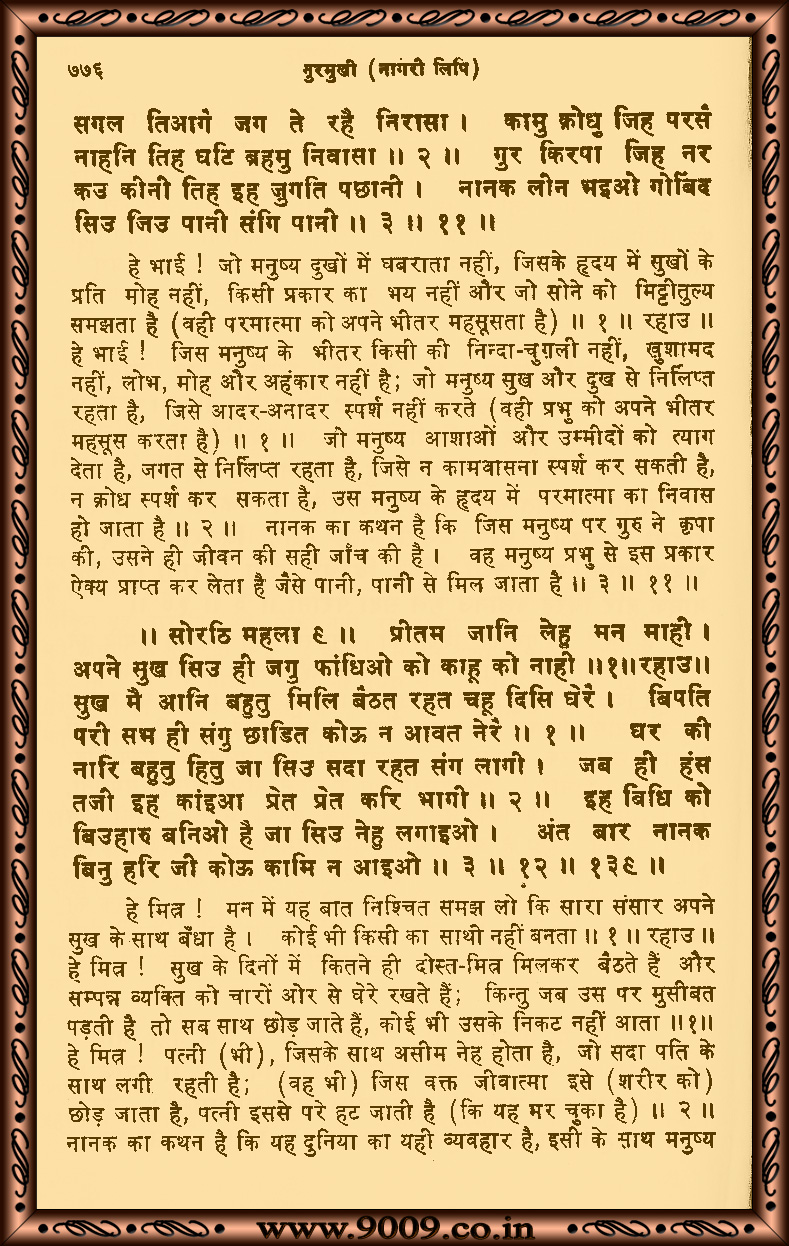 ७७६ गुरमुखी (नागरी लिपि)
सगल तिआगै जग ते रहै निरासा । कामु क्रोधु जिह परसै
नाहनि तिह घटि ब्रहमु निवासा ॥ २ ॥ गुर किरपा जिह नर
कउ कीनी तिह इह जुगति पछानी । नानक लीन भइओ गोबिंद
सिउ जिउ पानी संगि पानी ॥ ३ ॥ ११ ॥
हे भाई ! जो मनुष्य दुखों में घबराता नहीं, जिसके हृदय में सुखों के
प्रति मोह नहीं, किसी प्रकार का भय नहीं और जो सोने को मिट्टीतुल्य
समझता है (वही परमात्मा को अपने भीतर महसूसता है) ॥ १ ॥ रहाउ ॥
हे भाई ! जिस मनुष्य के भीतर किसी की निन्दा-चुग़ली नहीं, खुशामद
नहीं, लोभ, मोह और अहंकार नहीं है; जो मनुष्य सुख और दुख से निर्लिप्त
रहता है, जिसे आदर-अनादर स्पर्श नहीं करते (वही प्रभु को अपने भीतर
महसूस करता है) ॥ १ ॥ जो मनुष्य आशाओं और उम्मीदों को त्याग
देता है, जगत से निर्लिप्त रहता है, जिसे न कामवासना स्पर्श कर सकती है,
न क्रोध स्पर्श कर सकता है, उस मनुष्य के हृदय में परमात्मा का निवास
हो जाता है ॥ २ ॥ नानक का कथन है कि जिस मनुष्य पर गुरु ने कृपा
की, उसने ही जीवन की सही जाँच की है । वह मनुष्य प्रभु से इस प्रकार
ऐक्य प्राप्त कर लेता है जैसे पानी, पानी से मिल जाता है ॥ ३ ॥ ११ ॥
॥ सोरठि महला ९ ॥ प्रीतम जानि लेहु मन माही ।
अपने सुख सिउ ही जगु फांधिओ को काहू को नाही ॥१॥रहाउ॥
सुख मै आनि बहुतु मिलि बैठत रहत चहू दिसि घेरै । बिपति
परी सभ ही संगु छाडित कोऊ न आवत नेरै ॥ १ ॥ घर की
नारि बहुतु हितु जा सिउ सदा रहत संग लागी । जब ही हंस
तजी इह कांइआ प्रेत प्रेत करि भागी ॥ २ ॥ इह बिधि को
बिउहारु बनिओ है जा सिउ नेहु लगाइओ । अंत बार नानक
बिनु हरि जी कोऊ कामि न आइओ ॥ ३ ॥ १२ ॥ १३९ ॥
हे मित्र ! मन में यह बात निश्चित समझ लो कि सारा संसार अपने
सुख के साथ बँधा है । कोई भी किसी का साथी नहीं बनता ॥ १ ॥ रहाउ ॥
हे मित्र ! सुख के दिनों में कितने ही दोस्त-मित्र मिलकर बैठते हैं और
सम्पन्न व्यक्ति को चारों ओर से घेरे रखते हैं; किन्तु जब उस पर मुसीबत
पड़ती है तो सब साथ छोड़ जाते हैं, कोई भी उसके निकट नहीं आता ॥१॥
हे मित्र ! पत्नी (भी), जिसके साथ असीम नेह होता है, जो सदा पति के
साथ लगी रहती है; (वह भी) जिस वक्त जीवात्मा इसे (शरीर को)
छोड़ जाता है, पत्नी इससे परे हट जाती है (कि यह मर चुका है) ॥ २ ॥
नानक का कथन है कि यह दुनिया का यही व्यवहार है, इसी के साथ मनुष्य
www.9009.co.in